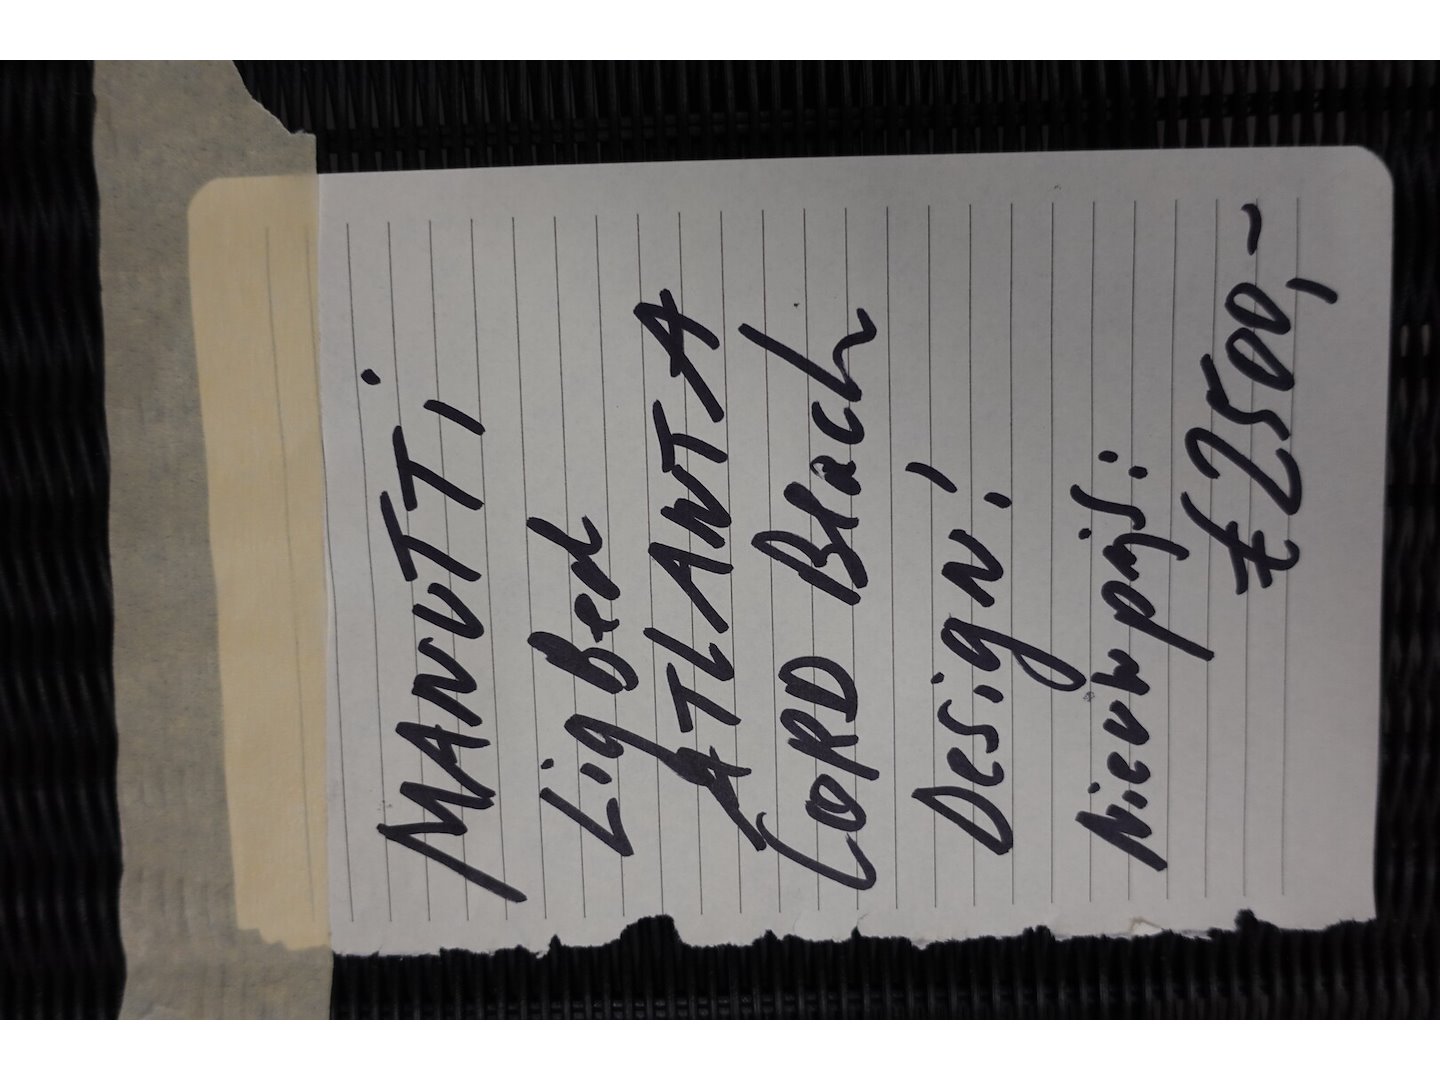 MANUTTI
Lig Bed
ATLANTA
CORD Black
Design!
Nieuwprijs:
€ 2500,-